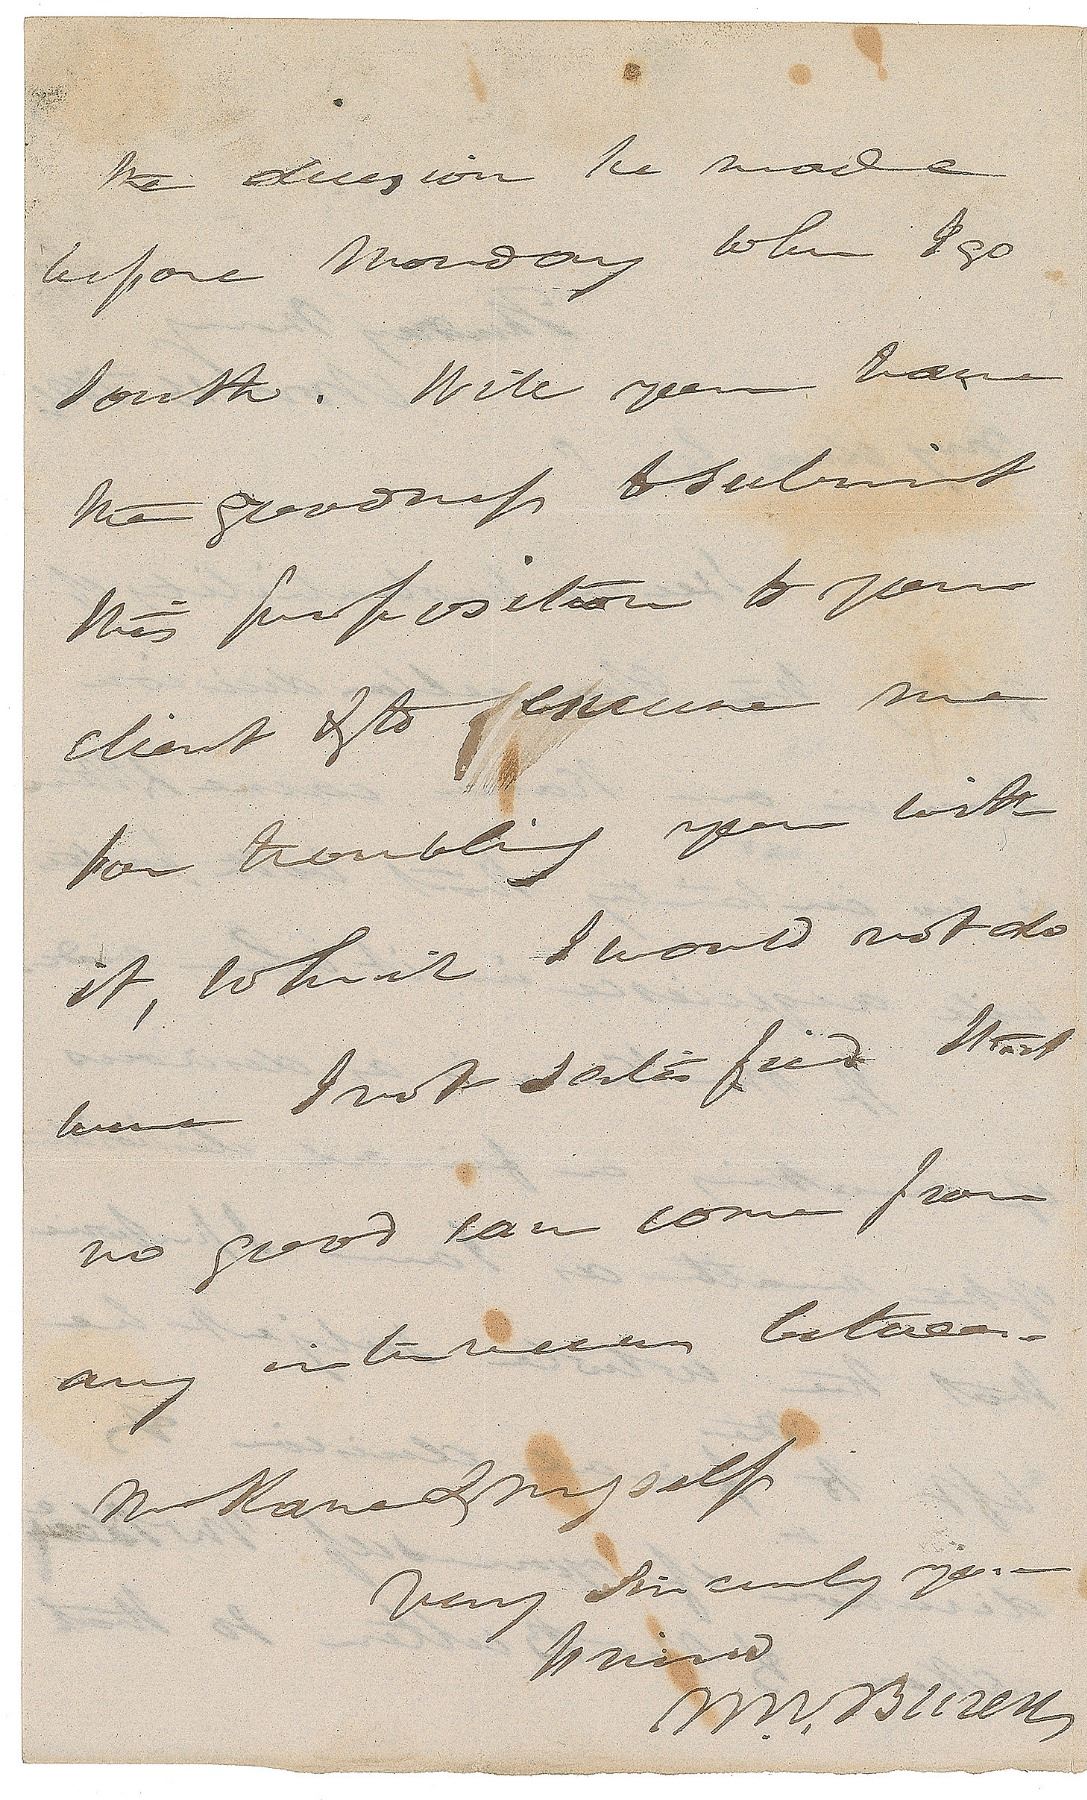 the decision be made
before Monday when I go
South. Will you have
the goodness to submit
this proposition to your
client & to excuse me
for troubling you with
it, which I would not do
were I not satisfied that
no good can come from
any interview between
Mr Kane & myself
Very Sincerely your
friend
M. V. Buren